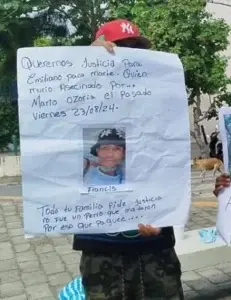 Queremos Justicia Para
Emiliano para morte. Quien
murio Asecinado Por...
Mario Ozoria el Pasado
Viernes 23/08/24.
Francis
Toda tu Familia Pide Justicia
no fue un Perro que mataron
Por eso que Paguee....